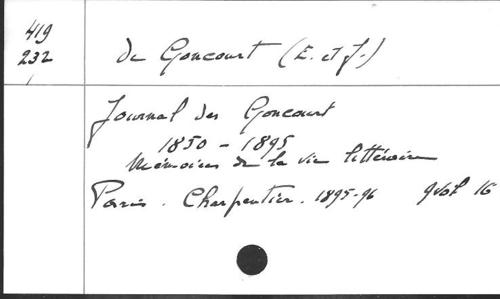 419
232
de Goncourt (E. et J.)
Journal des Goncourt
1850 - 1895
Mémoires de la vie littéraire
Paris. Charpentier. 1895-96 9 vol 16